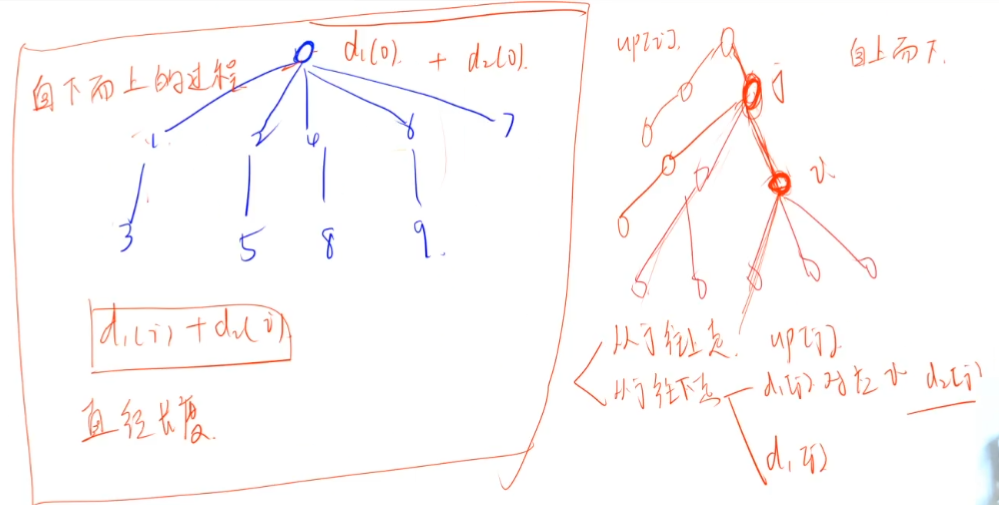 自下而上的过程
d₁(0) + d₂(0)
1 2 4 6 7
3 5 8 9
d₁(i) + d₂(i)
直径长度
up[i]
自上而下
j
i
从j往上走 up[j]
从j往下走 d₁[j]对应i d₂[j]
d₁[j]